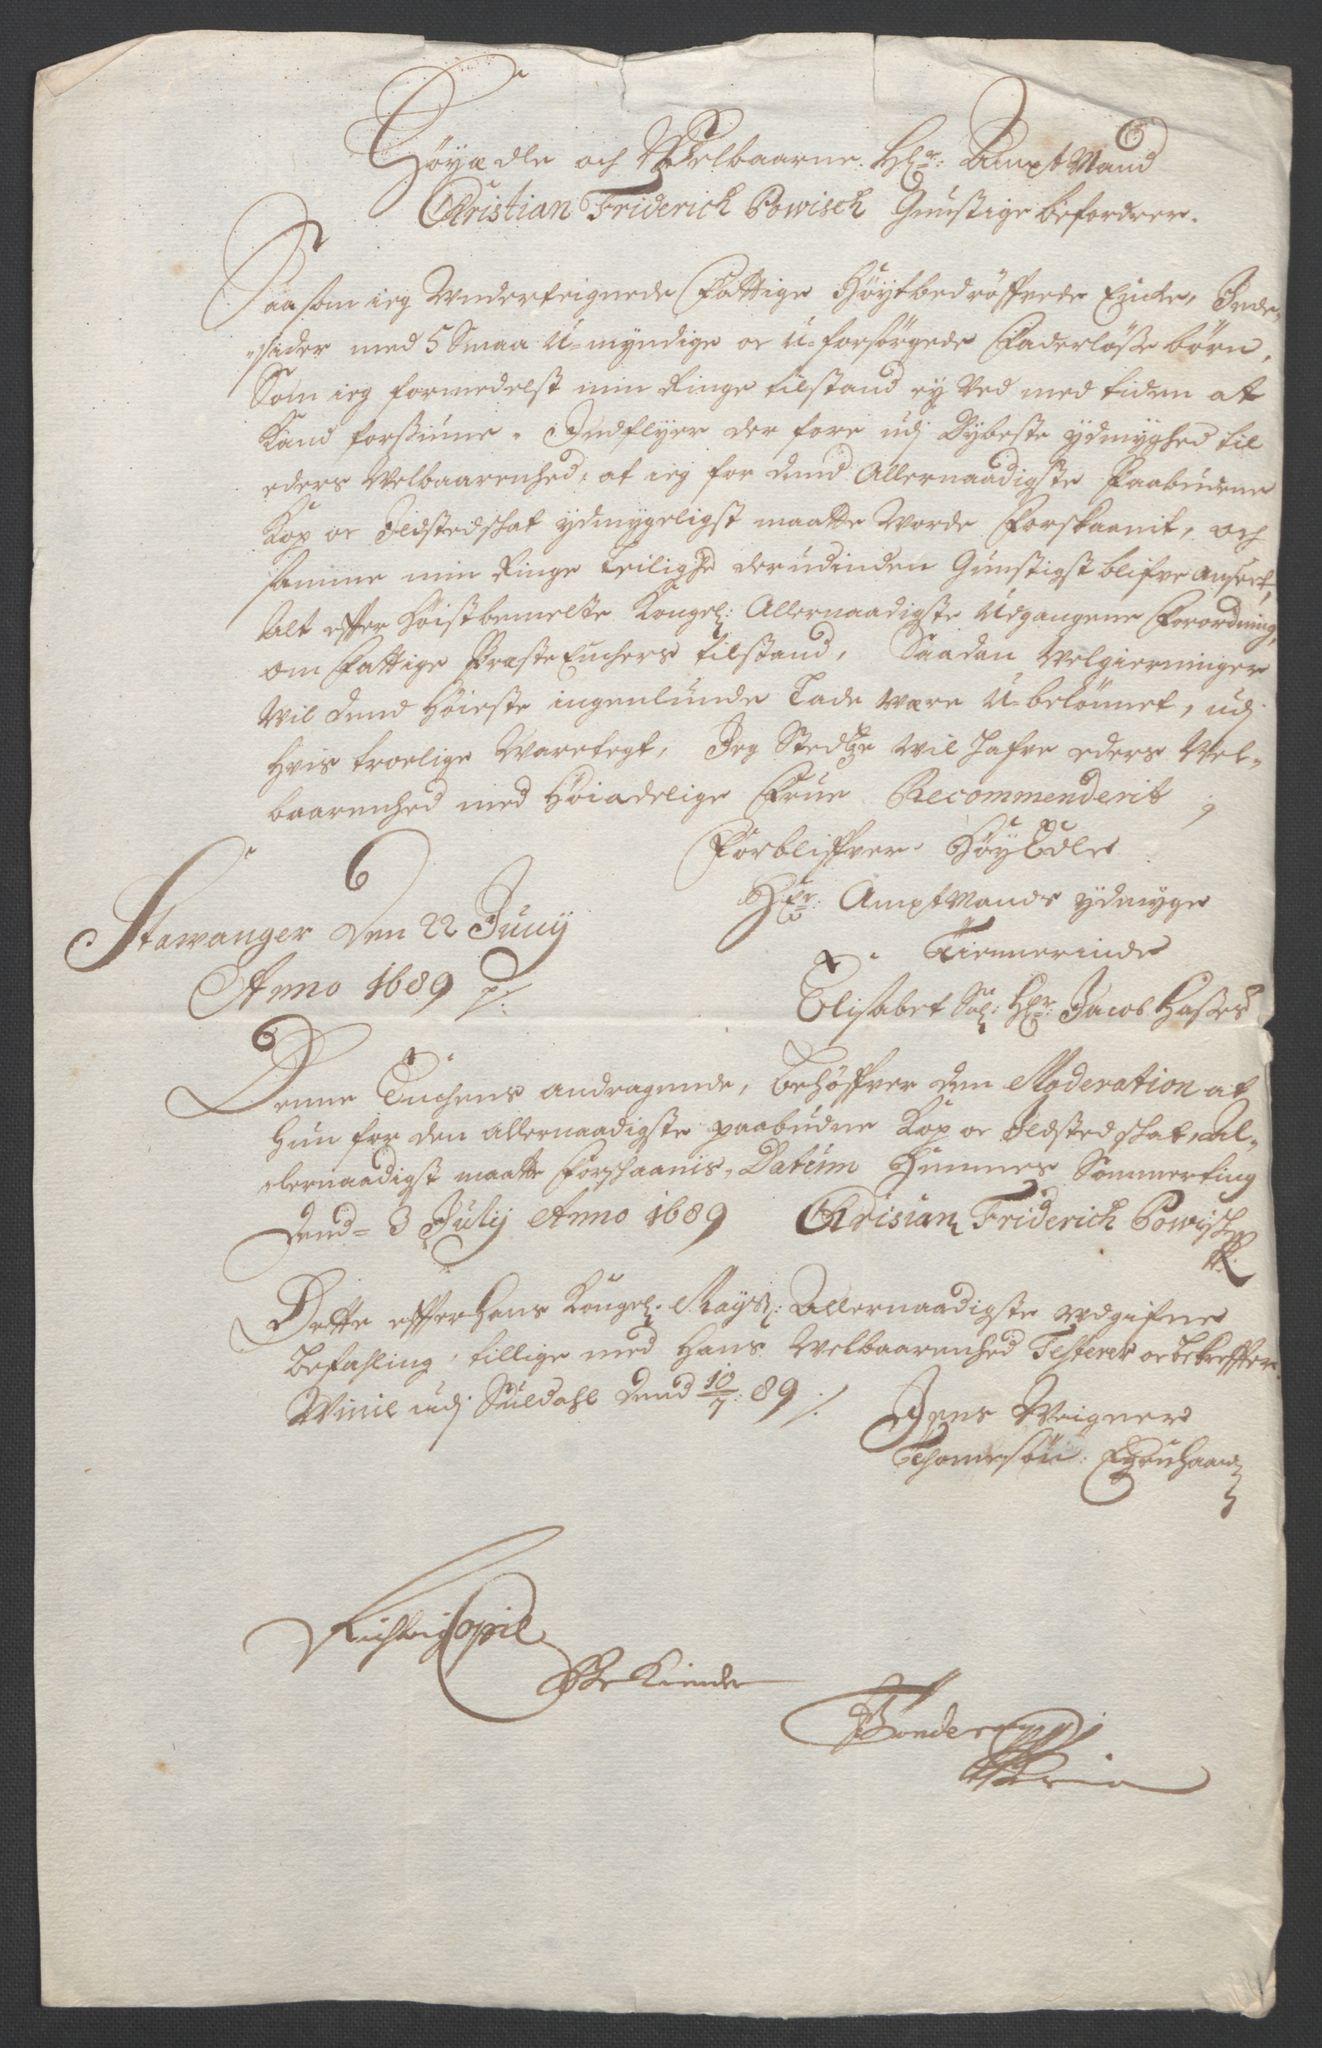 Höyædle och Welbaarne Hr: AmptMand
Christian Friderich Powisch Gunstige befordrer.
Saasom ieg Underteignede Fattige Höytbedröffvede Encke, Inde-
sider med 5 Smaa U-myndige oc U-forsörgede Faderlösse börn,
Som ieg formedelst min Ringe tilstand ey Ved med tiden at
Kand forsiune. Indflyer der fore udj Dybeste ydmyghed til
eders Welbaarenhed, at ieg for dend Allernaadigste Paabudene
Kop oc Ildstedschat ydmygeligst maatte Worde Forskaanit, och
samme min Ringe Leilighd derudinden Gunstigst blifve anseet,
Alt effter Höistbemelte Kongel: Allernaadigste Udgangene Forordning,
om Fattige Præste Enchers tilstand, Saadan Velgierninger
Wil dend Höieste ingenlunde Lade være U-belönnet, udj
Hvis troelige Waretegt, Jeg Stedtze wil hafve eders Wel-
baarenhed med Höiadelige Frue Recommenderit,
Forbliffver HöyEdle
Hr: AmptMands ydmyge
Tiennerinde
Elisabet Sal: Hr: Jacob Hasses
Stawanger den 22 Junij
Anno 1689
Denne Enchens andragende, behöffver den Moderation at
Hun for den allernaadigste paabudne Kop oc Ildstedschat, al-
lernaadigst maatte forschaanis, Datum Hinnes Sommerting
Dend 3 Julij Anno 1689 Christian Friderich Powisch
Dette effter Hans Kongel: Mayst: Allernaadigste udgifne
befahling, tillige med Hans Welbaarenhed Testerer oc bekreffter.
Winil udj Suldahl dend 10/7: 89
Jens Weigner
Thomesön: Egenhaand
Richtig Copie
Bekiender
Tönder